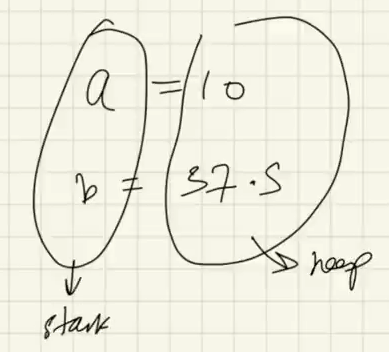 a = 10
b = 37.5
heap
stack